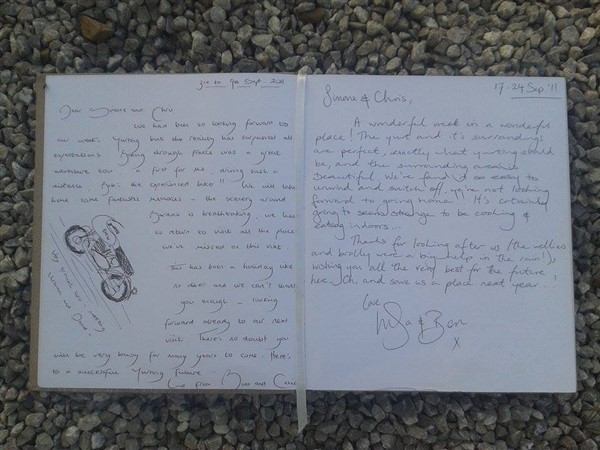 3rd to 9th Sept 2011
Dear Simone and Chris
We have been so looking forward to
our week yurting but the reality has surpassed all
expectations. through France was a great
adventure too - a first for me, being such a
distance the experienced biker!! We will take
home some fantastic memories - the scenery around
is breathtaking, we have
to return to visit all the places
we've missed on this visit
This has been a holiday like
no other and we can't thank
you enough - looking
forward already to our next
visit. There's no doubt you
will be very busy for many years to come. Here's
to a successful Yurting future
Love from and
17-24 Sep '11
Simone & Chris,
A wonderful week in a wonderful
place! The yurt and it's surroundings
are perfect, exactly what yurting should
be, and the surrounding area is
beautiful. We've found it so easy to
unwind and switch off, we're not looking
forward to going home!! It's certainly
going to seem strange to be cooking &
eating indoors...
Thanks for looking after us (the wellies
and brolly were a big help in the rain!),
wishing you all the very best for the future
here. Oh, and save us a place next year...!
Love
& Ben
x